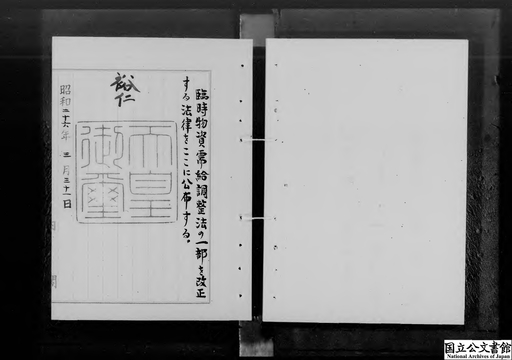 臨時物資需給調整法の一部を改正
する法律をここに公布する。
裕仁
天皇
御璽
昭和二十六年三月三十一日
国立公文書館
National Archives of Japan